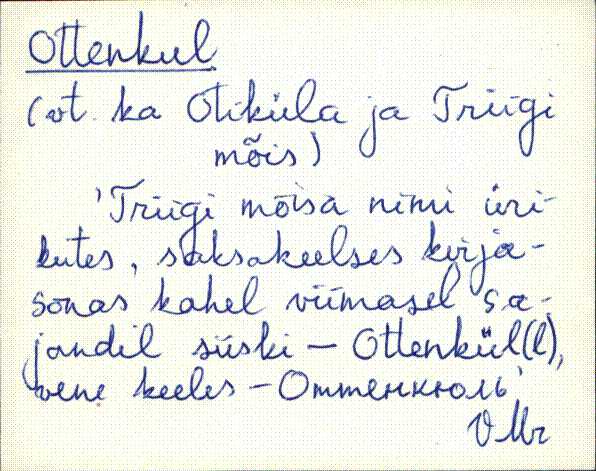 Ottenkul
(vt. ka Otiküla ja Triigi
mõis)
'Triigi mõisa nimi üri-
kutes, saksakeelses kirja-
sõnas kahel viimasel sa-
jandil siiski – Ottenkül(l),
vene keeles – Оттенкюль'
VMr